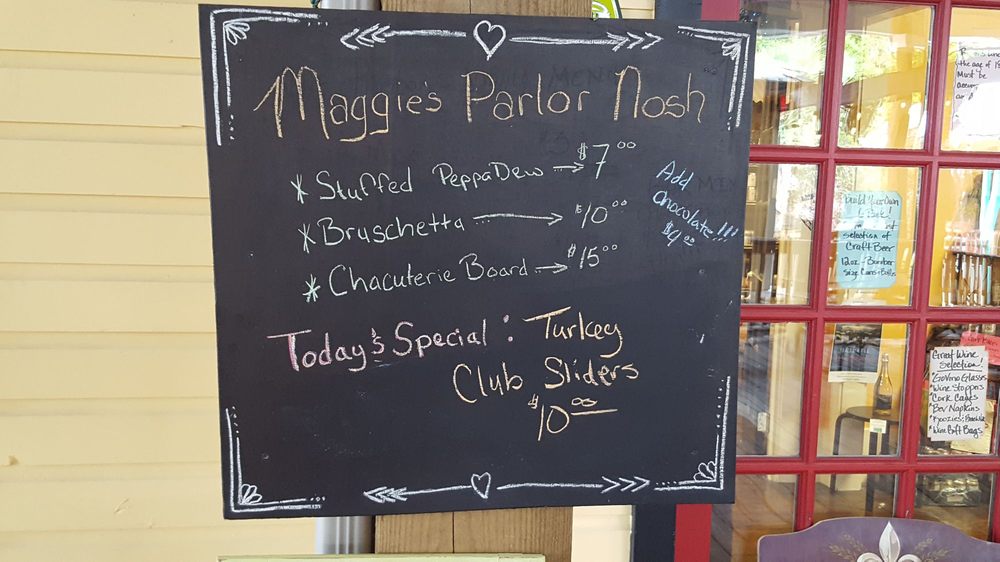 Maggie's Parlor Nosh
* Stuffed PeppaDew → $7.00
* Bruschetta → $10.00
* Chacuterie Board → $15.00
Add
Chocolate!!!
$4.00
Today's Special: Turkey
Club Sliders
$10.00
the age of
Must be
Build Your Own
selection of
Craft Beer
12oz - Bomber
Size Cans + Bottles
Great Wine
Selection!
*GoVino Glasses
*Wine Stoppers
*Cork Cages
*Bev Napkins
*Wine Gift Bags